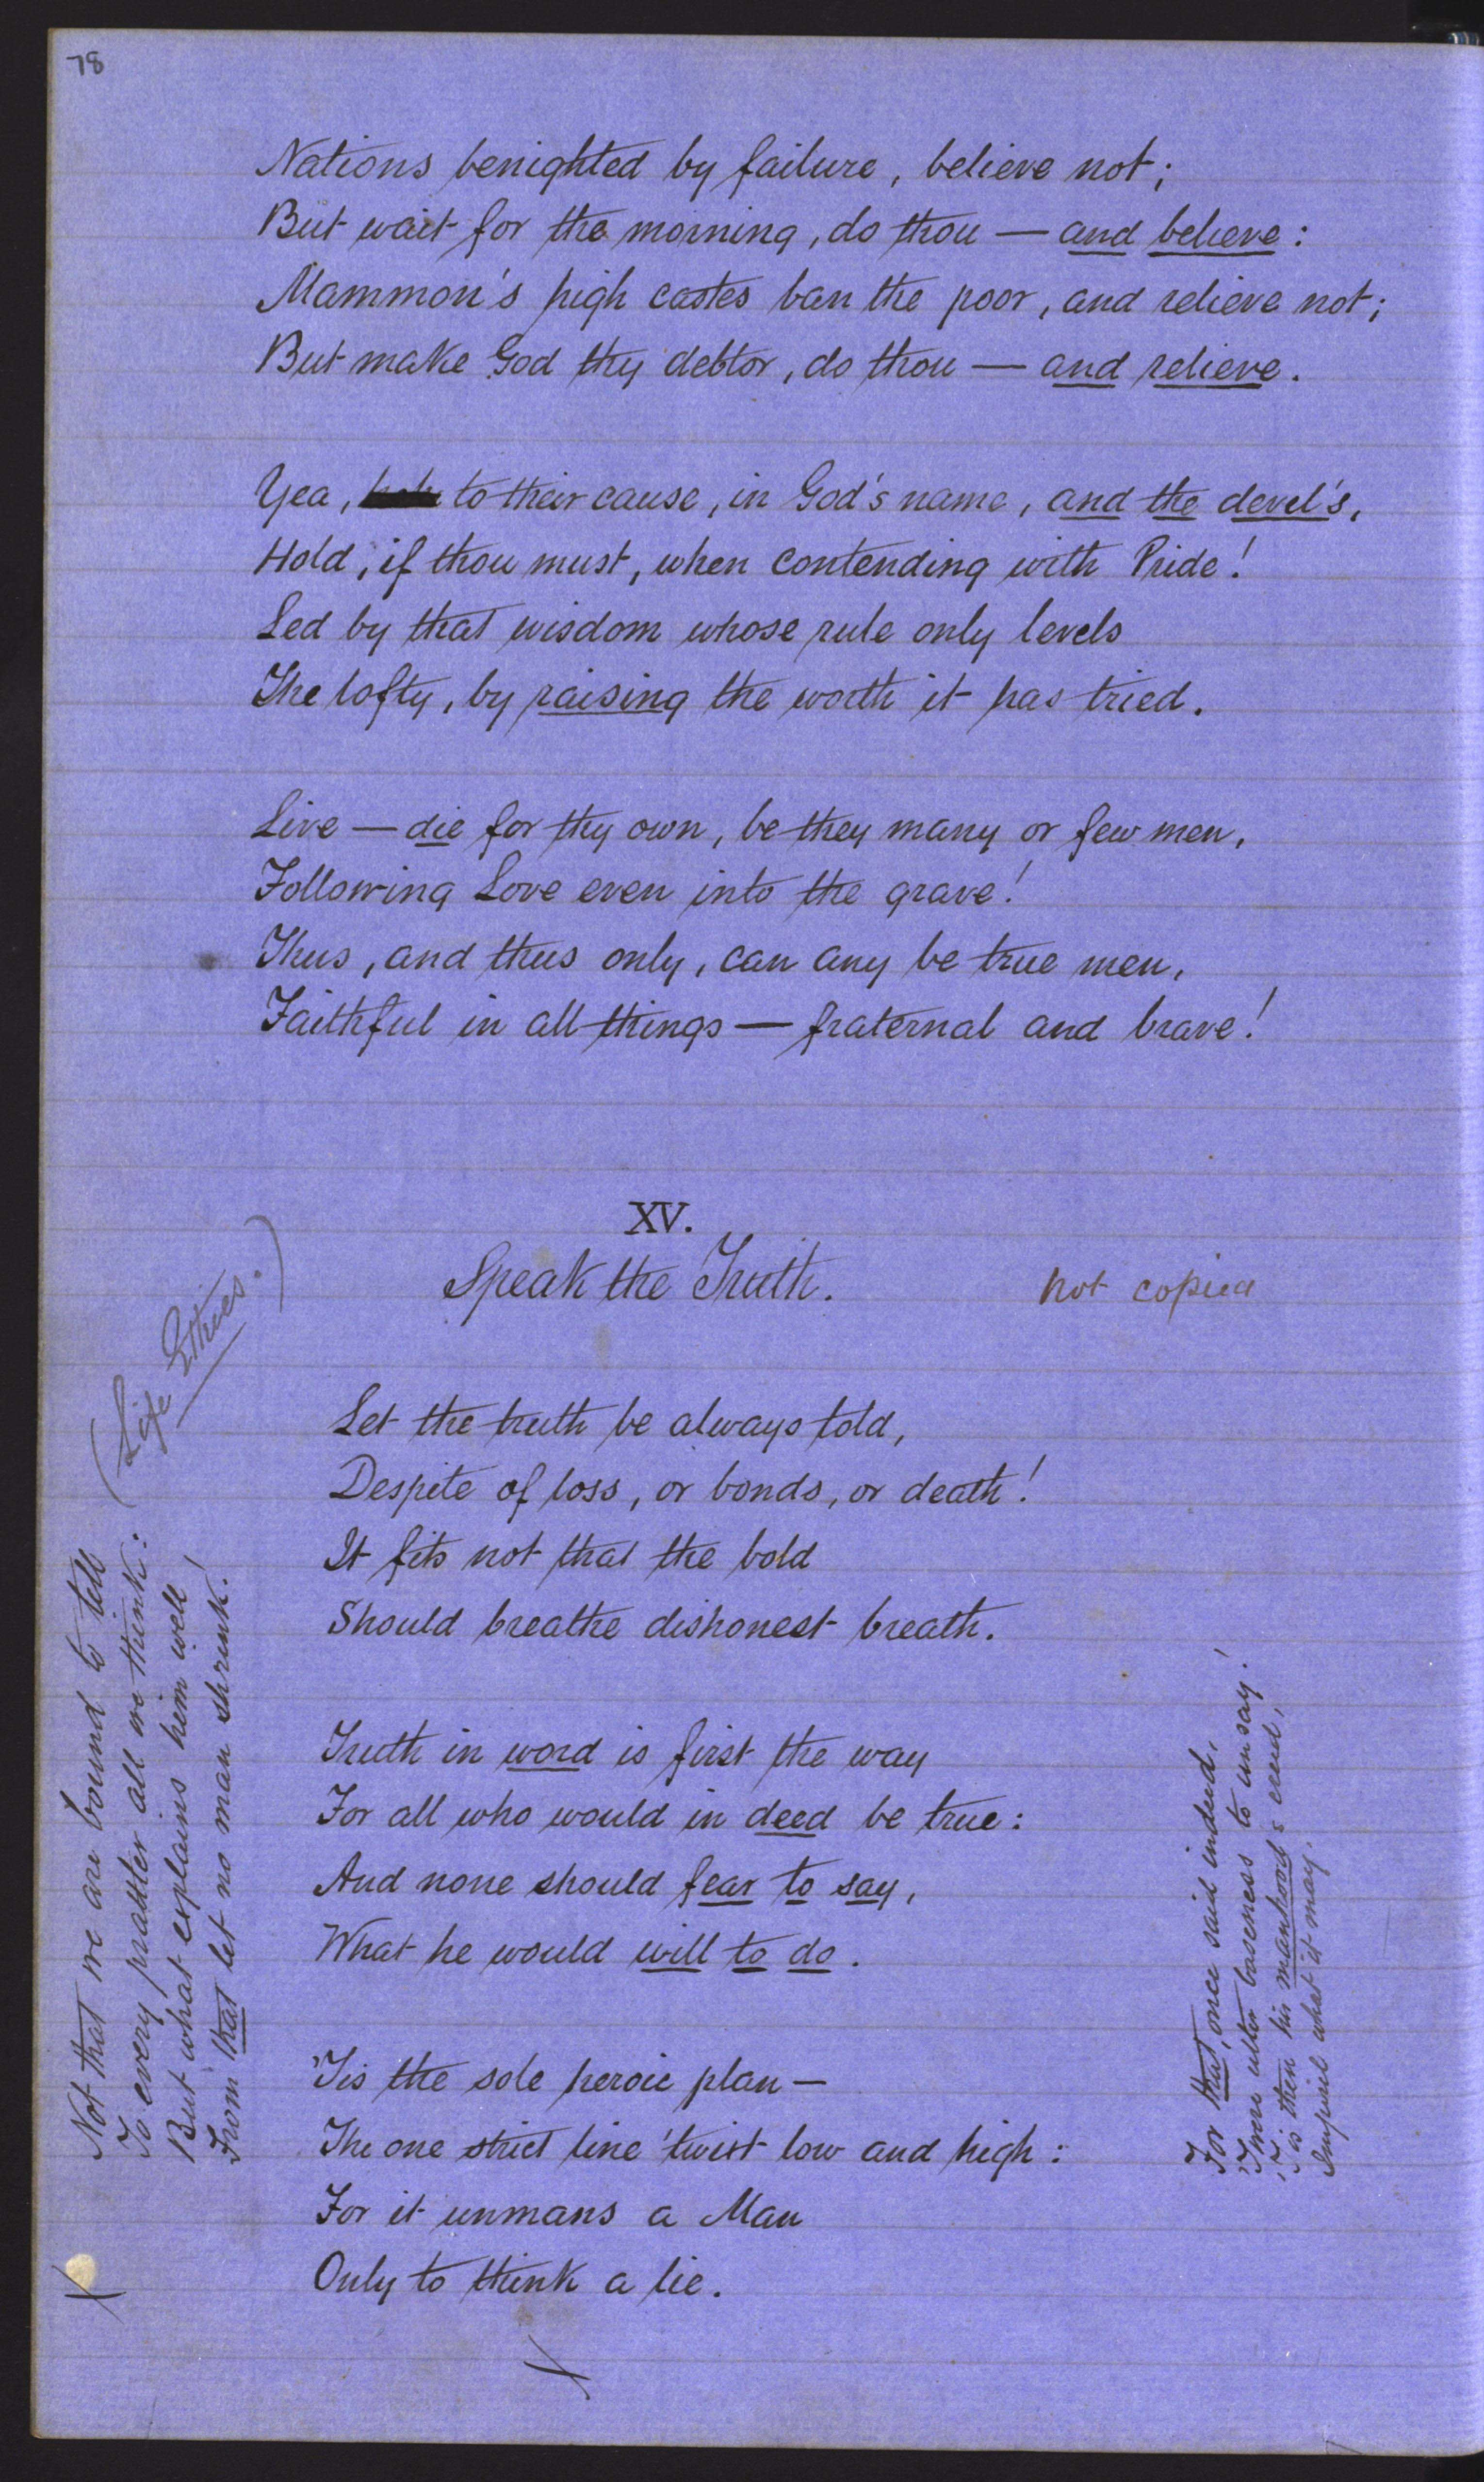 78
Nations benighted by failure, believe not;
But wait for the morning, do thou — and believe:
Mammon's high castes ban the poor, and relieve not;
But make God thy debtor, do thou — and relieve.
Yea, to their cause, in God's name, and the devel's,
Hold, if thou must, when contending with Pride!
Led by that wisdom whose rule only levels
The lofty, by raising the worth it has tried.
Live — die for thy own, be they many or few men,
Following Love even into the grave!
Thus, and thus only, can any be true men,
Faithful in all things — fraternal and brave!
XV.
Speak the Truth.
not copied
(Life Ethics.)
Let the truth be always told,
Despite of loss, or bonds, or death!
It fits not that the bold
Should breathe dishonest breath.
Truth in word is first the way
For all who would in deed be true:
And none should fear to say,
What he would will to do.
'Tis the sole heroic plan —
The one strict line 'twixt low and high:
For it unmans a Man
Only to think a lie.
X
Not that we are bound to tell
To every prattler all we think:
But what explains him well
From that let no man shrink!
X
For that, once said indeed,
'Twere utter baseness to unsay!
'Tis then his manhood's creed,
Inspire what it may.